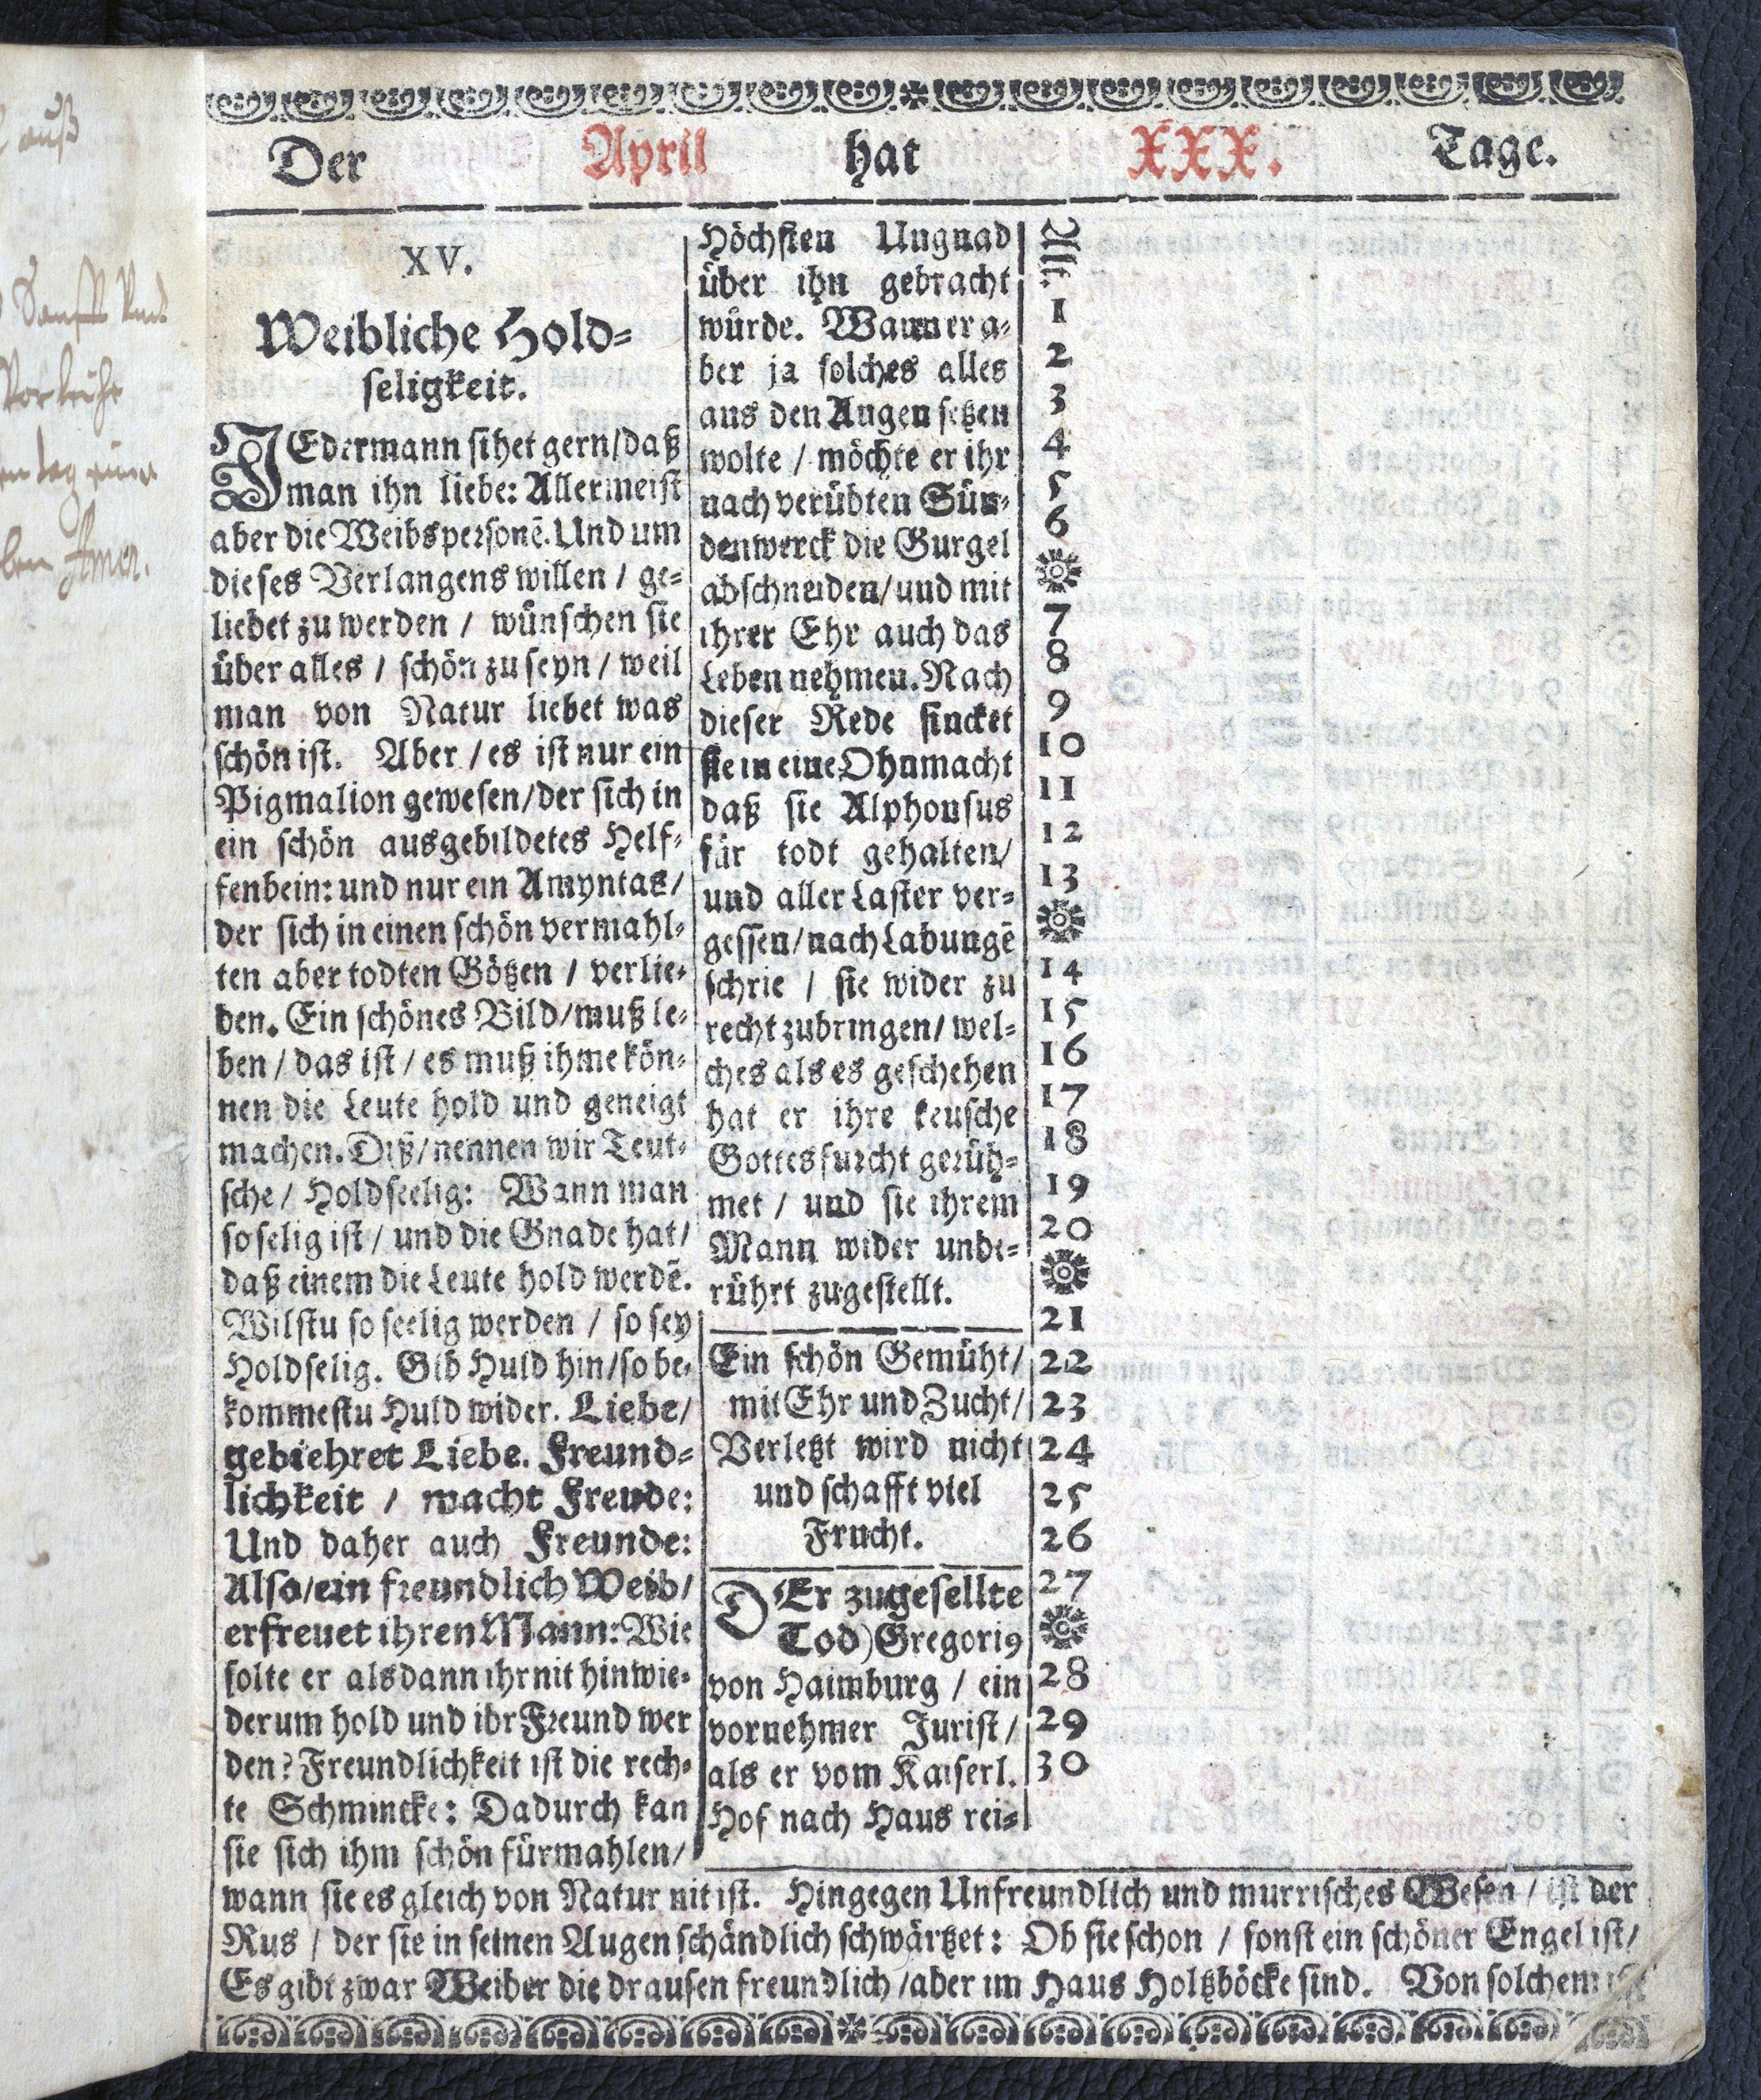 auß
Amen.
Der April hat XXX. Tage.
XV.
Weibliche Hold-
seligkeit.
JEdermann sihet gern/daß
man ihn liebe: Allermeist
aber die Weibspersonē. Und um
dieses Verlangens willen / ge-
liebet zu werden / wünschen sie
über alles / schön zu seyn / weil
man von Natur liebet was
schön ist. Aber / es ist nur ein
Pigmalion gewesen/der sich in
ein schön ausgebildetes Helf-
fenbein: und nur ein Amyntas/
der sich in einen schön vermahl-
ten aber todten Götzen / verlie-
ben. Ein schönes Bild/muß le-
ben / das ist / es muß ihme kön-
nen die Leute hold und geneigt
machen. Diß/nennen wir Teut-
sche / Holdseelig: Wann man
so selig ist / und die Gnade hat/
daß einem die Leute hold werdē.
Wilstu so seelig werden / so sey
Holdselig. Gib Huld hin/so be-
kommestu Huld wider. Liebe/
gebiehret Liebe. Freund-
lichkeit / macht Freude:
Und daher auch Freunde:
Also/ein freundlich Weib/
erfreuet ihren Mann: Wie
solte er alsdann ihr nit hinwie-
derum hold und ihr Freund wer
den? Freundlichkeit ist die rech-
te Schmincke: Dadurch kan
sie sich ihm schön fürmahlen/
Höchsten Ungnad
über ihn gebracht
würde. Wann er a-
ber ja solches alles
aus den Augen setzen
wolte / möchte er ihr
nach verübten Sün-
denwerck die Gurgel
abschneiden/und mit
ihrer Ehr auch das
Leben nehmen. Nach
dieser Rede sincket
sie in eine Ohnmacht
daß sie Alphonsus
für todt gehalten/
und aller Laster ver-
gessen/nach Labungē
schrie / sie wider zu
recht zubringen/ wel-
ches als es geschehen
hat er ihre keusche
Gottesfurcht gerüh-
met / und sie ihrem
Mann wider unbe-
rührt zugestellt.
Ein schön Gemüht/
mit Ehr und Zucht/
Verletzt wird nicht
und schafft viel
Frucht.
DEr zugesellte
Tod) Gregoriꝰ
von Haimburg / ein
vornehmer Jurist/
als er vom Kaiserl.
Hof nach Haus rei-
Alt.
1
2
3
4
5
6
7
8
9
10
11
12
13
14
15
16
17
18
19
20
21
22
23
24
25
26
27
28
29
30
wann sie es gleich von Natur nit ist. Hingegen Unfreundlich und murrisches Wesen / ist der
Rus / der sie in seinen Augen schändlich schwärtzet: Ob sie schon / sonst ein schöner Engel ist/
Es gibt zwar Weiber die drausen freundlich /aber im Haus Holtzböcke sind. Von solchem